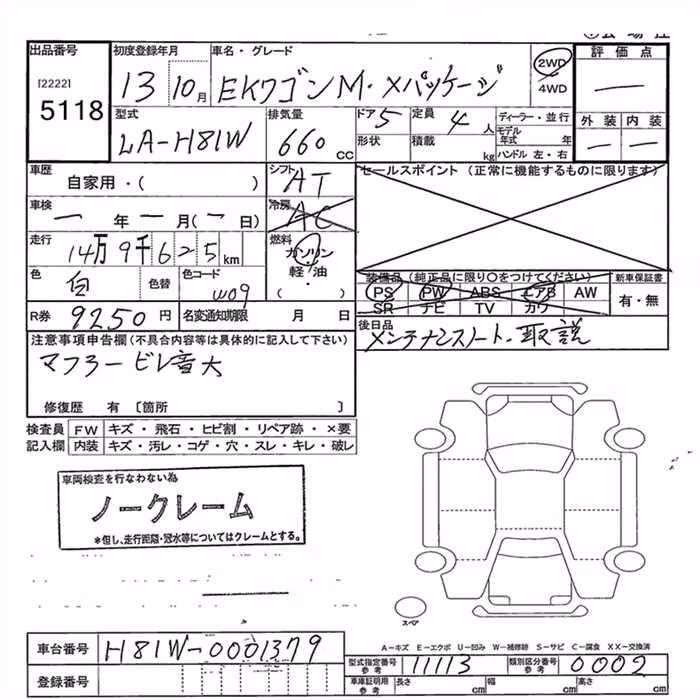 出品番号 初度登録年月 車名・グレード 評価点
[2222] 5118 13 10月 EKワゴンM・Xパッケージ 2WD 4WD
型式 排気量 ドア 5 定員 4人 ディーラー・並行 外装 内装
LA-H81W 660cc 形状 積載 kg モデル年式 年 ハンドル 左・右
車歴 シフト AT セールスポイント (正常に機能するものに限ります)
自家用・( )
車検 冷房 AC
一年一月(一日)
走行 燃料
14万9千625km ガソリン
色 白 色替 色コード W09 軽油 ( )
装備品(純正品に限り○をつけてください) 新車保証書
PS PW ABS エアB AW 有・無
SR ナビ TV カワ
R券 9250円 名変通知期限 月 日
後日品 メンテナンスノート、取説
注意事項申告欄(不具合内容等は具体的に記入して下さい)
マフラービレ音大
修復歴 有〔箇所 〕
検査員 FW キズ・飛石・ヒビ割・リペア跡・×要
記入欄 内装 キズ・汚レ・コゲ・穴・スレ・キレ・破レ
車両検査を行なわない為
ノークレーム
*但し、走行距離・冠水等についてはクレームとする。
スペア
車台番号 H81W-0001379
A-キズ E-エクボ U-凹み W-補修跡 S-サビ C-腐食 XX-交換済
型式指定番号 参考 11113 類別区分番号 参考 0002
登録番号 車庫証明用 参考 長さ cm 幅 cm 高さ cm